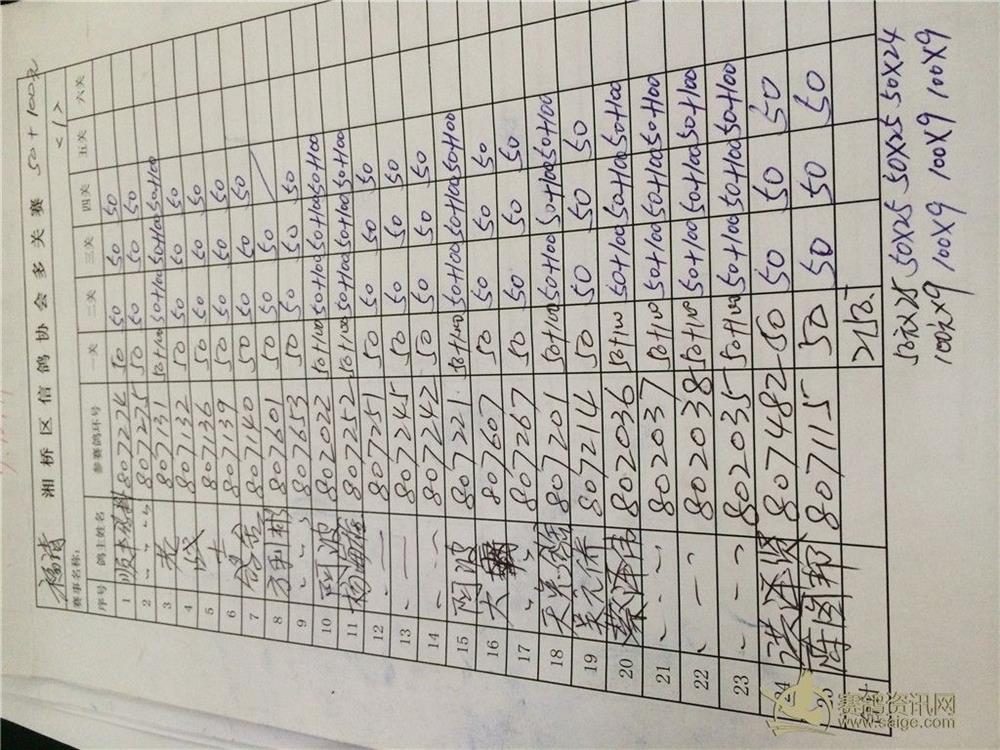 福清 湘桥区信鸽协会多关赛 50+100元
赛事名称: <1>
序号 鸽主姓名 参赛鸽环号 一关 二关 三关 四关 五关 六关
1 807224 50 50 50 50
2 807275 50 50 50 50
3 807131 50+100 50+100 50+100 50+100
4 807132 50 50 50 50
5 807136 50 50 50 50
6 807139 50 50 50 50
7 807140 50 50 50 50
8 807601 50 50 50
9 807653 50 50 50 50
10 阿波 802022 50+100 50+100 50+100 50+100
11 807252 50+100 50+100 50+100 50+100
12 807251 50 50 50 50
13 807245 50 50 50 50
14 807242 50 50 50 50
15 阿波 807221 50+100 50+100 50+100 50+100
16 807607 50 50 50 50
17 807267 50 50 50 50
18 807201 50+100 50+100 50+100 50+100
19 807214 50 50 50 50
20 802036 50+100 50+100 50+100 50+100
21 802037 50+100 50+100 50+100 50+100
22 802038 50+100 50+100 50+100 50+100
23 802035 50+100 50+100 50+100 50+100
24 807482 50 50 50 50
25 陈国邦 807115 50 50 50 50
合计
50元X25 50X25 50X25 50X24
100元X9 100X9 100X9 100X9
赛鸽资讯网
www.saige.com